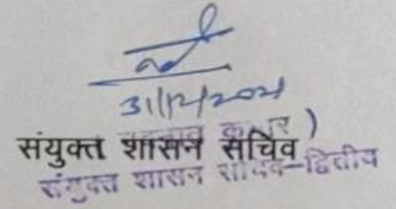 31/12/2021
संयुक्त शासन सचिव
संयुक्त शासन सचिव-द्वितीय